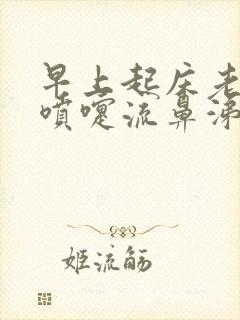 早上起床老
喷嚏流鼻涕
姬流觞